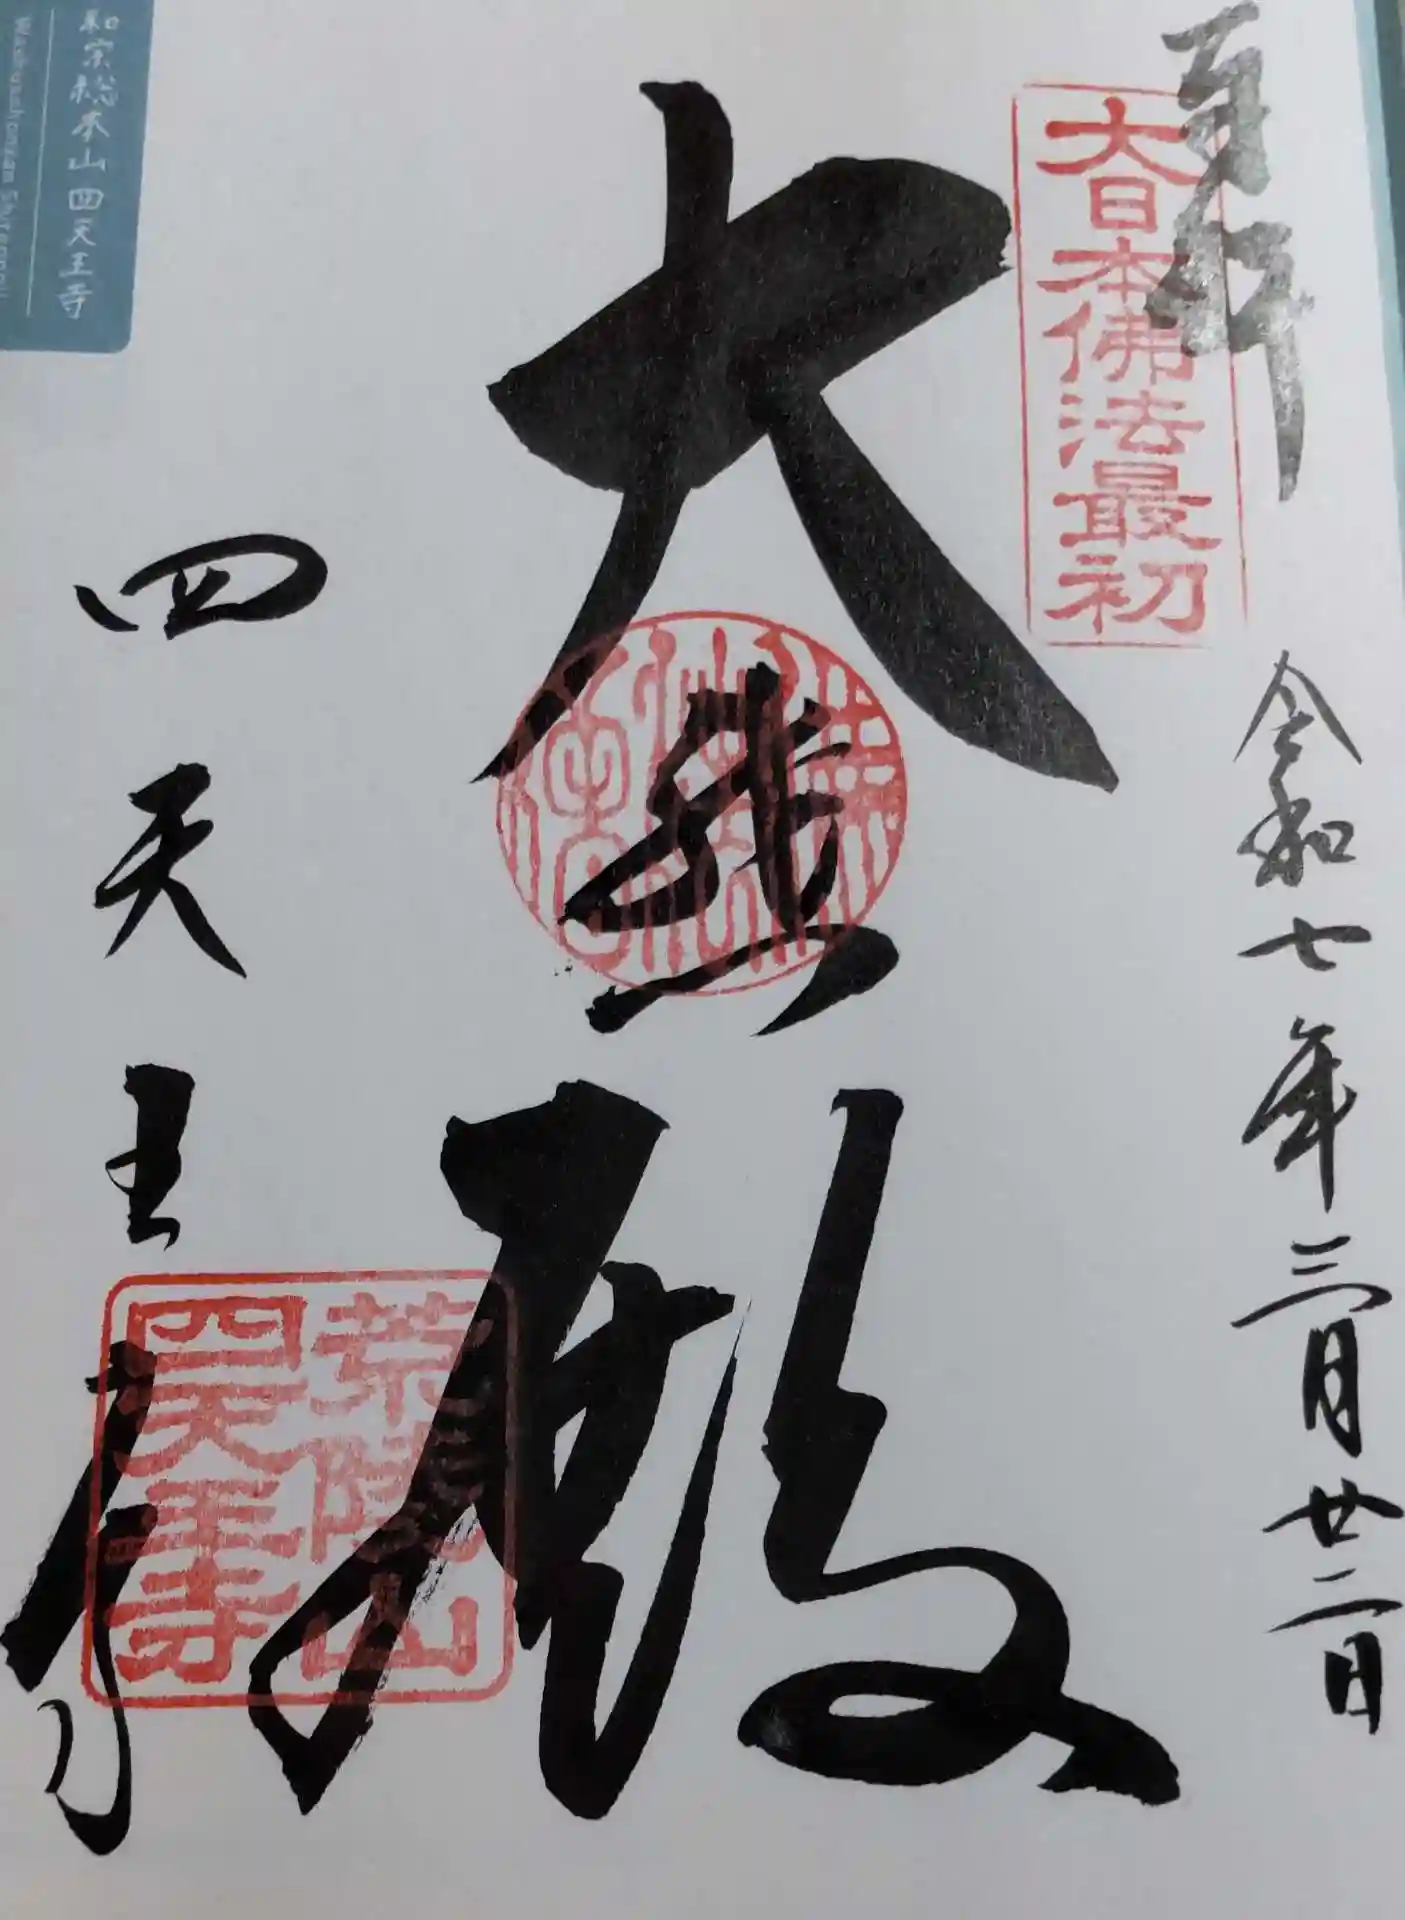 奉拝
大日本佛法最初
令和七年三月廿二日
大悲殿
四天王寺
荒陵山
四天王寺
和宗総本山 四天王寺